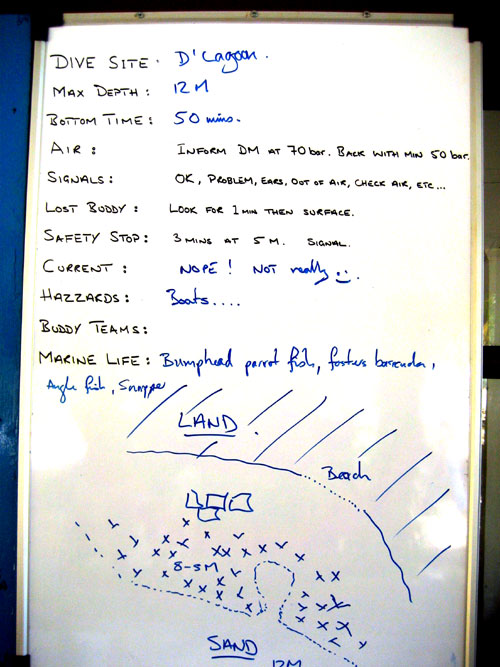 DIVE SITE: D'Lagoon.
MAX DEPTH: 12 M
BOTTOM TIME: 50 mins.
AIR: INFORM DM AT 70 bar. BACK WITH MIN 50 bar.
SIGNALS: OK, PROBLEM, EARS, OUT OF AIR, CHECK AIR, ETC...
LOST BUDDY: LOOK FOR 1 MIN THEN SURFACE.
SAFETY STOP: 3 MINS AT 5 M. SIGNAL.
CURRENT: NOPE! NOT really
HAZZARDS: Boats....
BUDDY TEAMS:
MARINE LIFE: Bumphead parrot fish, barracuda,
Angle fish, Snapper
LAND
Beach
8-5M
SAND
12M